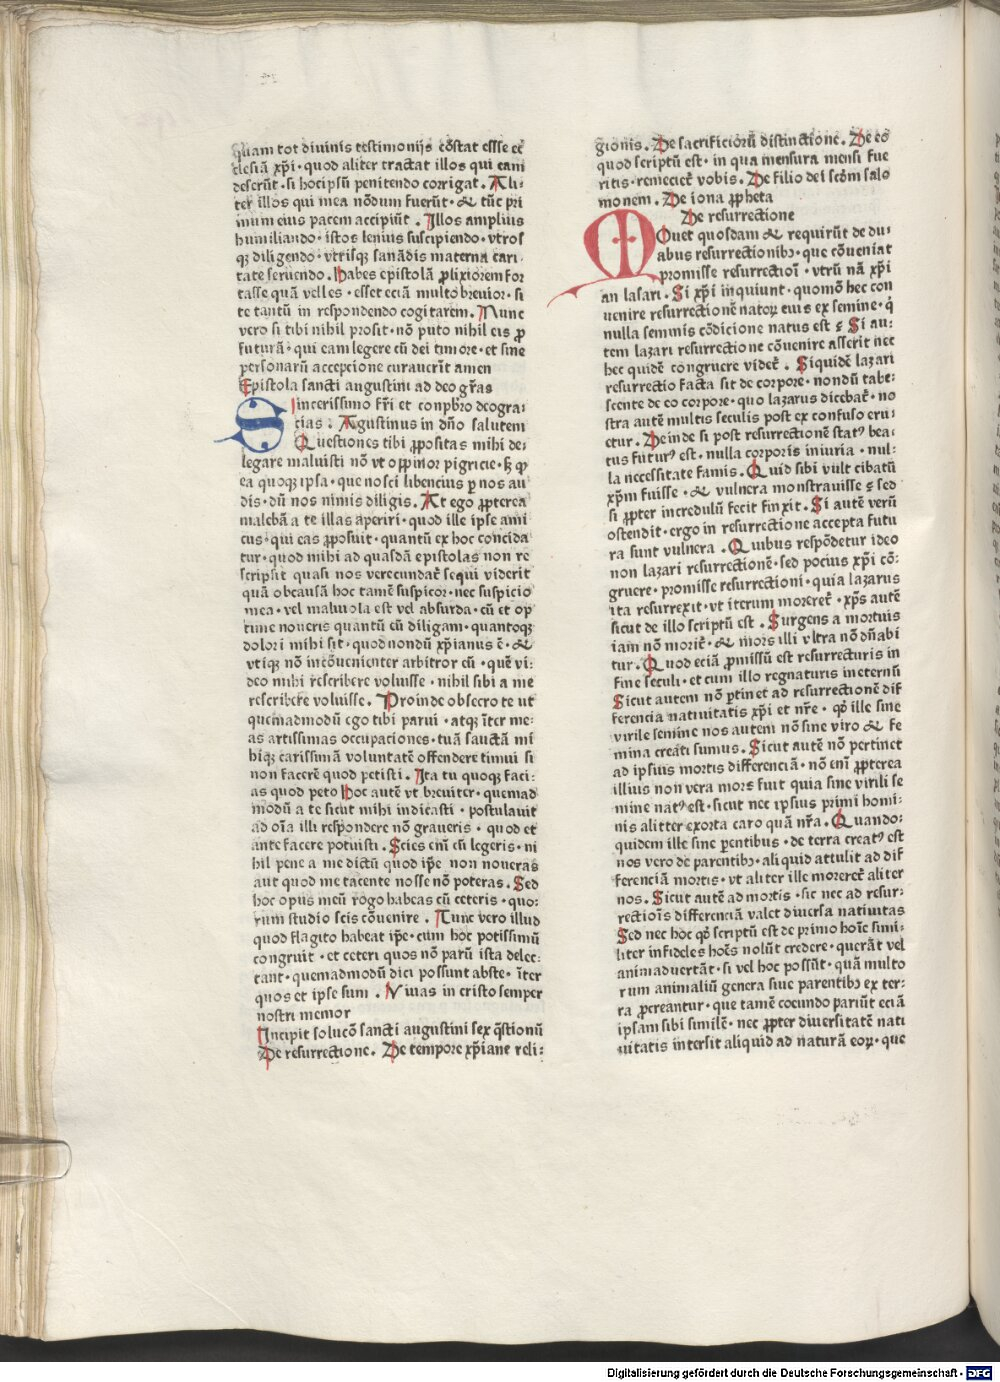 quam tot diuinis testimonijs cōstat essse ec
clesiā xp̄i · quod aliter tractat illos qui eam
deserūt · si hocipsū penitendo corrigat . Ali⸗
ter illos qui mea nōdum fuerūt · & tūc pri
mum eius pacem accipiūt . Illos amplius
humiliando · istos lenius suscipiendo · vtros
qꝫ diligendo · vtrisqꝫ sanādis materna cari⸗
tate seruendo . Habes epistolā ꝓlixiorem for
tasse quā velles · esset eciā multo breuior · si
te tantū in respondendo cogitarem . Nunc
vero si tibi nihil prosit · nō puto nihil eis ꝓ
futurā · qui eam legere cū dei timore · et sine
personarū accepcione curauerīt amen
Epistola sancti augustini ad deo gr̄as
Sincerissimo fr̄i et conpb̄ro deogra⸗
cias : Augustinus in dn̄o salutem
Questiones tibi ꝓpositas mihi de⸗
legare maluisti nō vt oppinor pigricie · sꝫ qꝫ
ea quoqꝫ ipsa · que nosci libencius ꝑ nos au
dis · dū nos nimis diligis . At ego ꝓpterea
malebā a te illas aperiri · quod ille ipse ami
cus · qui eas ꝓposuit · quantū ex hoc concida
tur · quod mihi ad quasdā epistolas non re
scripsit quasi nos verecundat̄ sequi viderit
quā obcausā hoc tamē suspicor · nec suspicio
mea · vel maliuola est vel absurda · cū et op
time noueris quantū cū diligam · quantoqꝫ
dolori mihi sit · quod nondū xp̄ianus ē · &
vtiqꝫ nō incōuenienter arbitror cū · quē vi⸗
deo mihi rescribere voluisse · nihil sibi a me
rescribere voluisse . Proinde obsecro te ut
quemadmodū ego tibi parui · atqꝫ īter me⸗
as artissimas occupaciones · tuā sanctā mi
hiqꝫ carissimā voluntatē offendere timui si
non facerē quod petisti . Ita tu quoqꝫ faci⸗
as quod peto Hoc autē vt breuiter · quemad
modū a te sicut mihi indicasti · postulauit
ad oīa illi respondere nō graueris · quod et
ante facere potuisti . Scies enī cū legeris · ni
hil pene a me dictū quod ip̄e non noueras
aut quod me tacente nosse nō poteras . Sed
hoc opus meū rogo habeas cū ceteris · quo⸗
rum studio scis cōuenire . Tunc vero illud
quod flagito habeat ip̄e · cum hoc potissimū
congruit · et ceteri quos nō parū ista delec⸗
tant · quemadmodū dici possunt abste · īter
quos et ipse sum . Viuas in cristo semper
nostri memor
Incipit solucō sancti augustini sex q̄stionū
De resurrectione . De tempore xp̄iane reli⸗
gionis . De sacrificiorū distinctione . De eo
quod scriptū est · in qua mensura mensi fue
ritis · remeciet̄ vobis . De filio dei scd̄m salo
monem . De iona ꝓpheta
De resurrectione
Mouet quosdam & requirūt de du⸗
abus resurrectionibꝫ · que cōueniat
promisse resurrectioī · vtrū nā xp̄i
an lasari . Si xp̄i inquiunt · quomō hec con
uenire resurrectionē natoꝝ eius ex semine · q̇
nulla seminis cōdicione natus est ⸗ Si au⸗
tem lazari resurrectione cōuenire asserit nec
hec quidē congruere videt̄ . Siquidē lazari
resurrectio facta sit de corpore · nondū tabe⸗
scente de eo corpore · quo lazarus dicebat̄ · no
stra autē multis seculis post ex confuso eru⸗
etur . Deinde si post resurrectionē statꝰ bea⸗
tus futurꝰ est · nulla corporis iniuria · nul⸗
la necessitate famis . Quid sibi vult cibatū
xp̄m fuisse · & vulnera monstrauisse ⸗ sed
si ꝓpter incredulū fecit finxit . Si autē verū
ostendit · ergo in resurrectione accepta futu
ra sunt vulnera . Quibus respōdetur ideo
non lazari resurrectionē · sed pocius xp̄i cō⸗
gruere · promisse resurrectioni · quia lazarus
ita resurrexit · vt iterum moreret̄ · xp̄s autē
sicut de illo scriptū est . Surgens a mortuis
iam nō morit̄ · & mors illi vltra nō dn̄abi
tur . Quod eciā ꝓmissū est resurrecturis in
fine seculi · et cum illo regnaturis ineternū
Sicut autem nō ꝑtinet ad resurrectionē dif
ferencia natiuitatis xp̄i et nr̄e · qꝫ ille sine
virile semine nos autem nō sine viro & fe
mina creati sumus . Sicut autē nō pertinet
ad ipsius mortis differenciā · nō enī ꝓpterea
illius non vera mors fuit quia sine virili se
mine natꝰ est · sicut nec ipsius primi homi⸗
nis alitter exorta caro quā nr̄a . Quando⸗
quidem ille sine ꝑentibus · de terra creatꝰ est
nos vero de parentibꝫ · aliquid attulit ad dif
ferenciā mortis · vt aliter ille moreret̄ aliter
nos . Sicut autē ad mortis · sic nec ad resur⸗
rectioīs differenciā valet diuersa natiuitas
Sed nec hoc qꝫ scriptū est de primo hoīe simi⸗
liter infideles hoēs nolūt credere · querāt vel
animaduertāt · si vel hoc possūt · quā multo
rum animaliū genera siue parentibꝫ ex ter⸗
ra ꝓcreantur · que tamē coeundo pariūt eciā
ipsam sibi similē · nec ꝓpter diuersitatē nati
uitatis intersit aliquid ad naturā eoꝝ · que
Digitalisierung gefördert durch die Deutsche Forschungsgemeinschaft - DFG